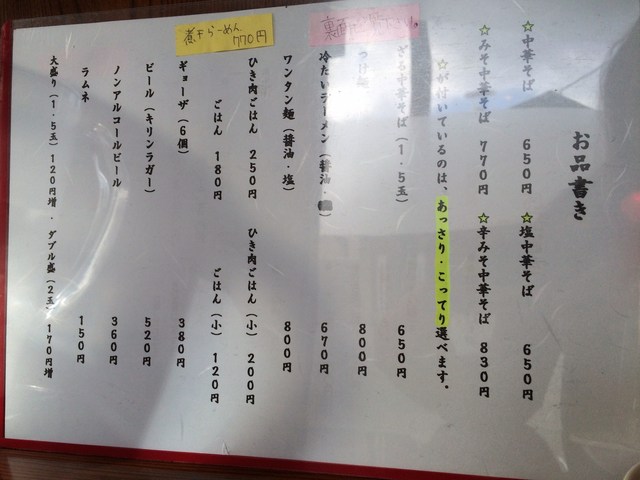 お品書き
☆中華そば 650円 ☆塩中華そば 650円
☆みそ中華そば 770円 ☆辛みそ中華そば 830円
☆が付いているのは、あっさり・こってり選べます。
ざる中華そば(1.5玉) 650円
つけ麺 800円
冷たいラーメン(醤油・ 670円
ワンタン麺(醤油・塩) 800円
ひき肉ごはん 250円 ひき肉ごはん(小) 200円
ごはん 180円 ごはん(小) 120円
ギョーザ(6個) 380円
ビール(キリンラガー) 520円
ノンアルコールビール 360円
ラムネ 150円
大盛り(1.5玉)120円増・ダブル盛(2玉)170円増
煮干らーめん 770円
裏面